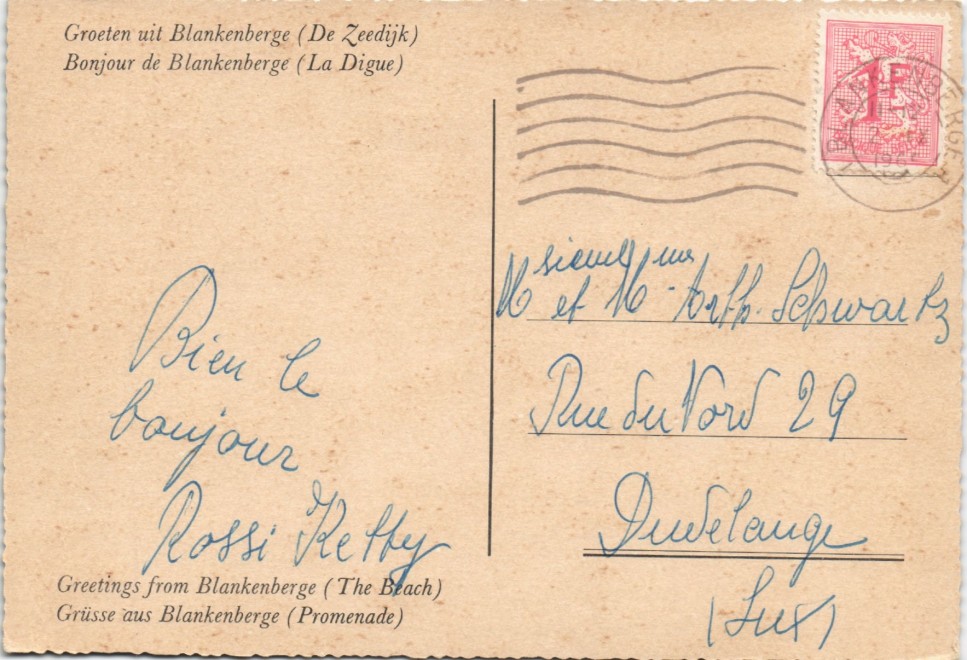 Groeten uit Blankenberge (De Zeedijk)
Bonjour de Blankenberge (La Digue)
1F
BLANKENBERGE
Bien le
bonjour
Rossi Ketty
Greetings from Blankenberge (The Beach)
Grüsse aus Blankenberge (Promenade)
Monsieur et Mme Arth. Schwartz
Rue du Nord 29
Dudelange
(Lux)